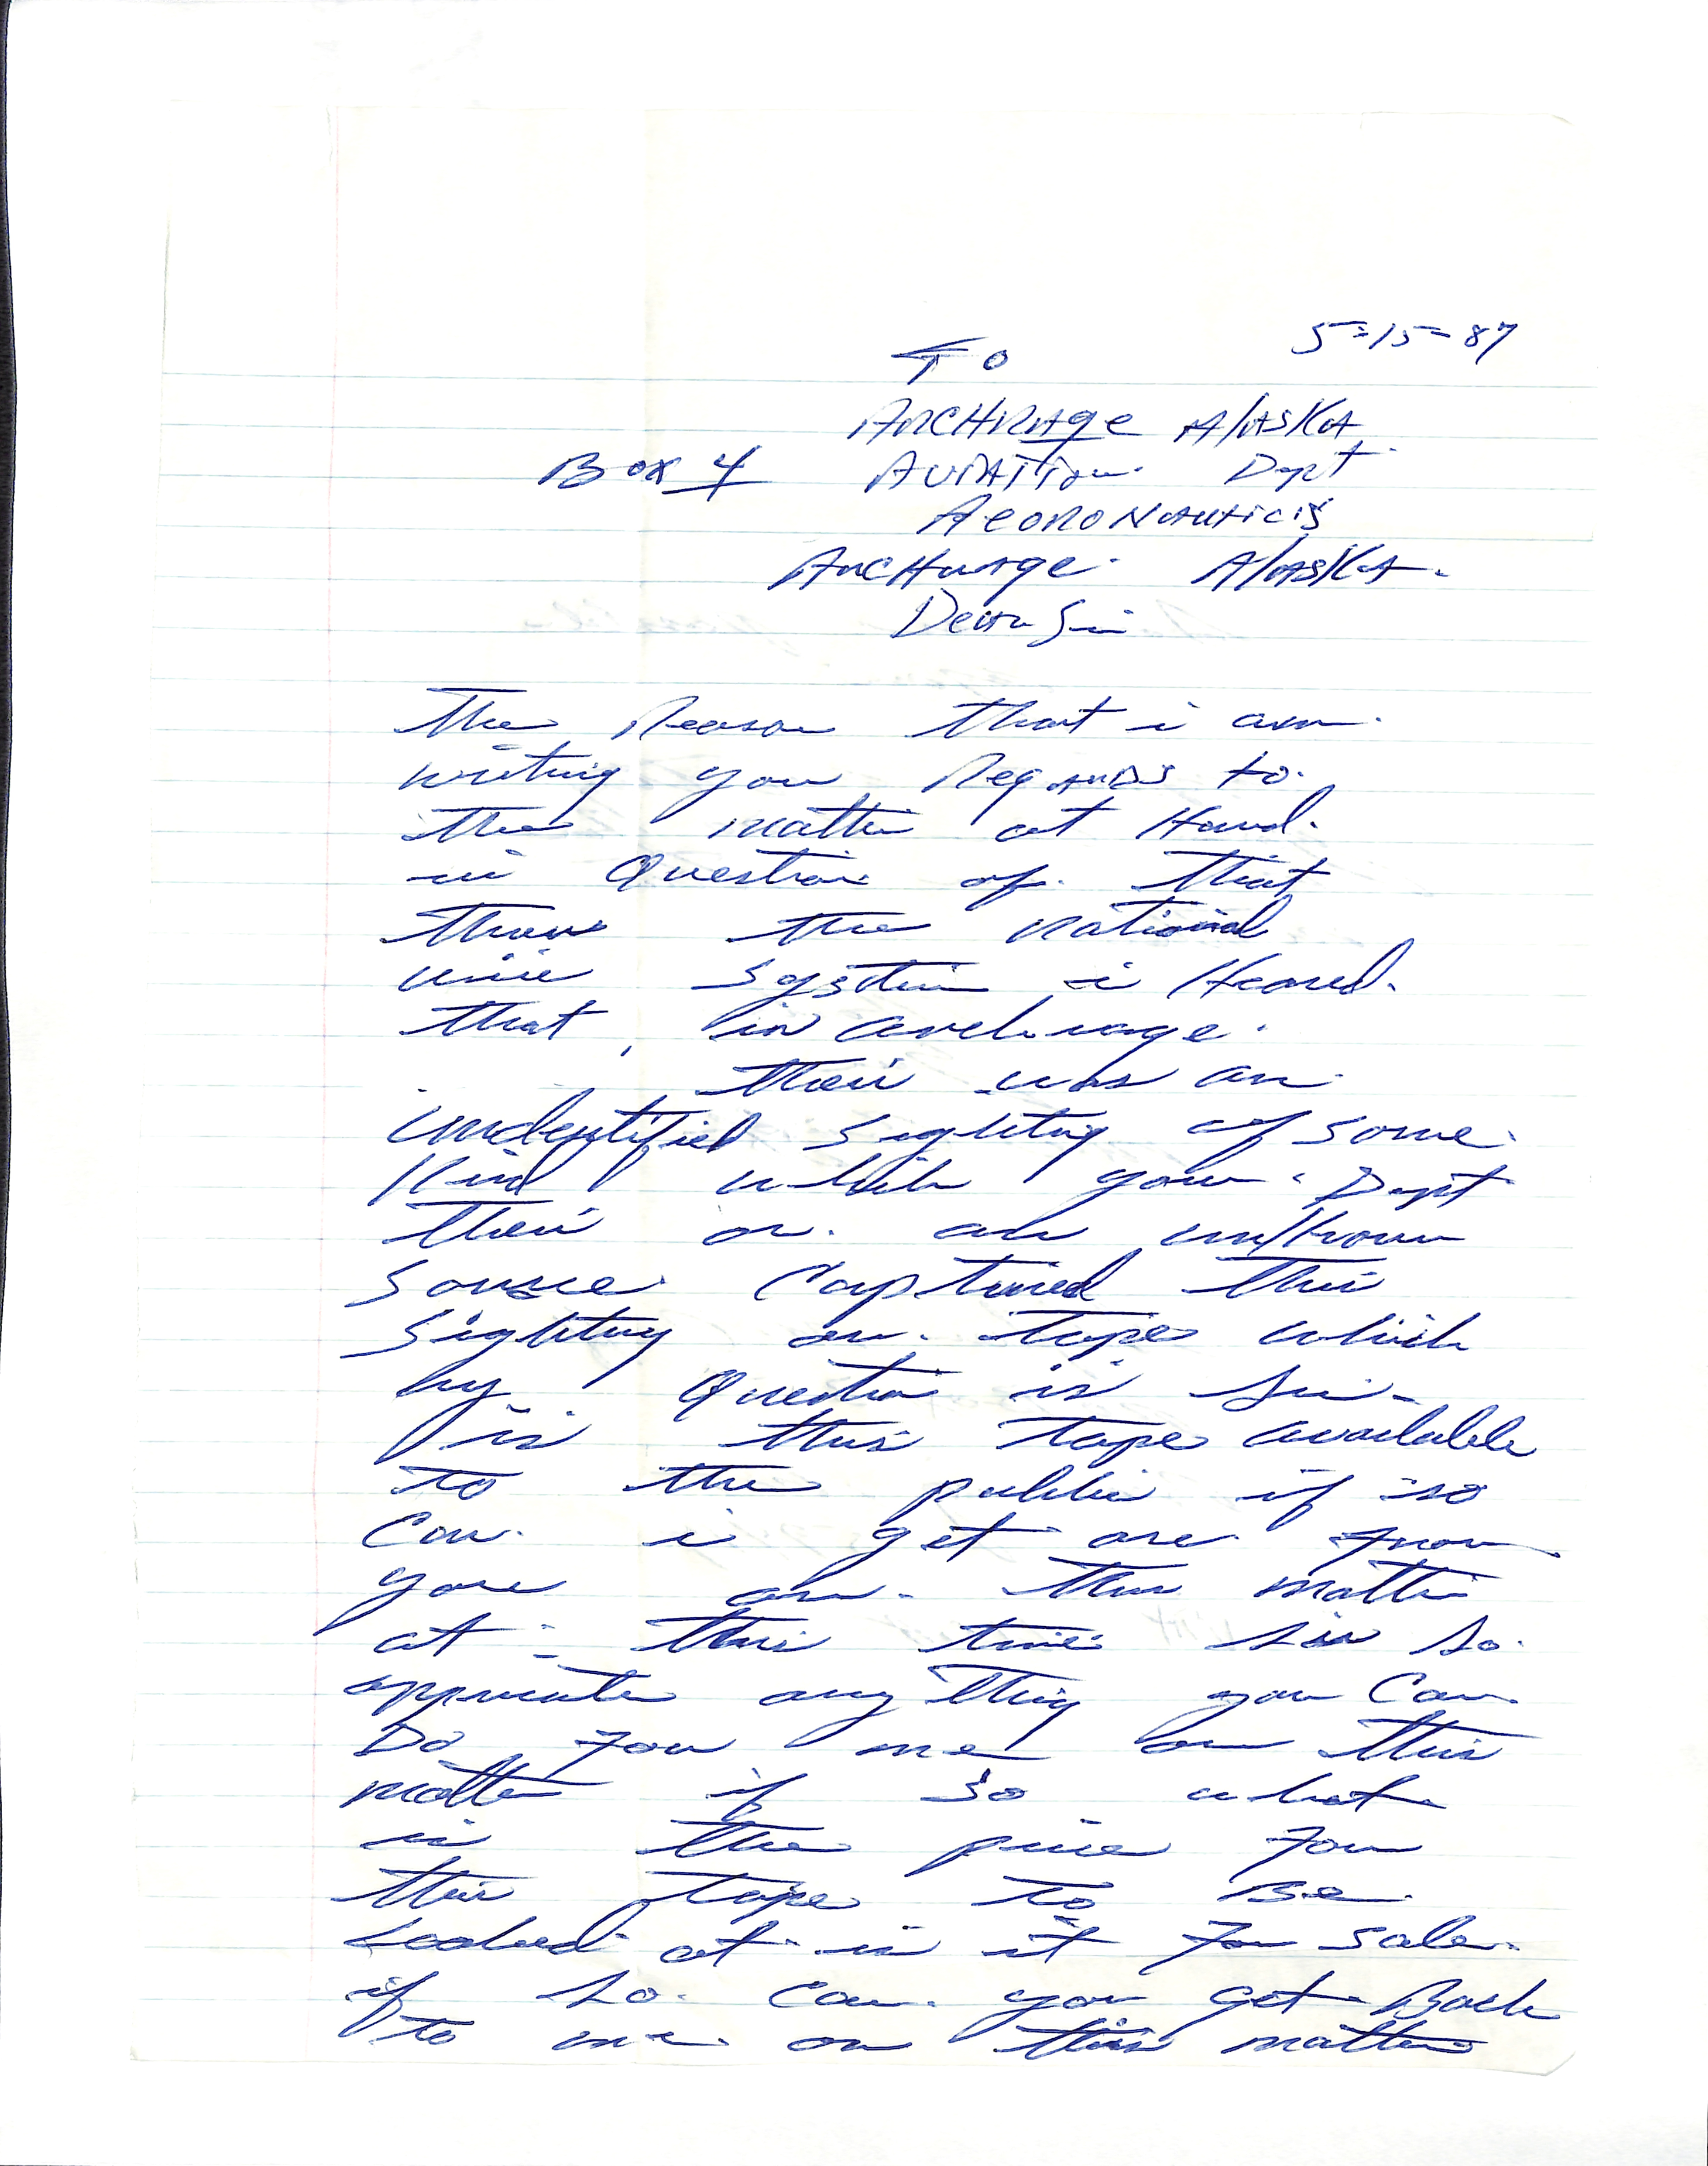 5-15-87
TO
ANCHRAge AlASKA
Box 4 AVIATION Dept
AeoroNauticis
ANCHurage AlASKA
Dear Sir
The Reason that i am
writing you Regards to
the matter at Hand
in Question of that
threw the national
wire System i Heared
that, in anchurage
their was an
undentified sighting of some
Kind which your Dept
their or an unknown
source Captured this
sighting on tape which
my Question is sir
is this tape available
to the public if so
can i get one from
you on this matter
at this time sir so
appreciate any thing you Can
Do for me on this
matter if so what
is the price for
this tape to Be
Looked at is it for sale
if so can you get Back
to me on this matter